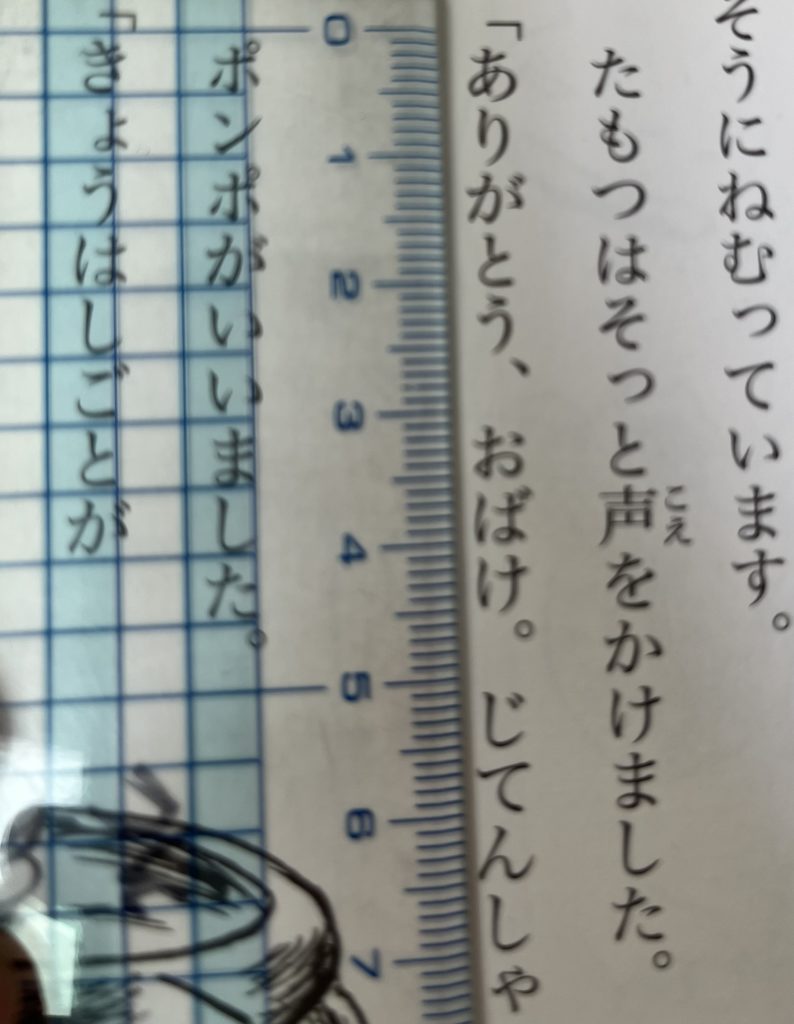 そうにねむっています。
たもつはそっと声をかけました。
こえ
「ありがとう、おばけ。じてんしゃ
ポンポがいいました。
「きょうはしごとが
0
1
2
3
4
5
6
7